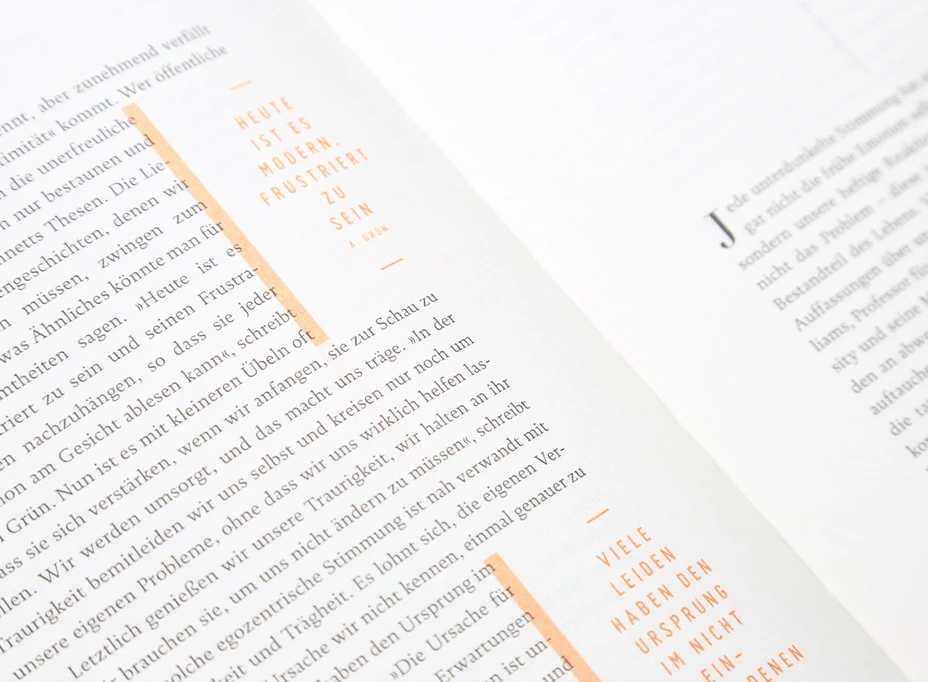 nnt, aber zunehmend verfällt
timität« kommt. Wer öffentliche
n die unerfreuliche
n nur bestaunen und
nnetts Thesen. Die Lie-
engeschichten, denen wir
n müssen, zwingen zum
was Ähnliches könnte man für
mtheiten sagen. »Heute ist es
riert zu sein und seinen Frustra-
en nachzuhängen, so dass sie jeder
ion am Gesicht ablesen kann«, schreibt
Grün. Nun ist es mit kleineren Übeln oft
ass sie sich verstärken, wenn wir anfangen, sie zur Schau zu
llen. Wir werden umsorgt, und das macht uns träge. »In der
Traurigkeit bemitleiden wir uns selbst und kreisen nur noch um
unsere eigenen Probleme, ohne dass wir uns wirklich helfen las-
Letztlich genießen wir unsere Traurigkeit, wir halten an ihr
r brauchen sie, um uns nicht ändern zu müssen«, schreibt
olche egozentrische Stimmung ist nah verwandt mit
keit und Trägheit. Es lohnt sich, die eigenen Ver-
Ursache wir nicht kennen, einmal genauer zu
aben den Ursprung im
»Die Ursache für
Erwartungen
n ist un-
und
HEUTE
IST ES
MODERN,
FRUSTRIERT
ZU
SEIN
A. GRÜN
VIELE
LEIDEN
HABEN DEN
URSPRUNG
IM NICHT
EIN-
DENEN
Jede unterdunkelte Stimmung
gar nicht die frühe Emotion
sondern unsere heftige Reaktion
nicht das Problem – diese
Bestandteil des Lebens.
Auffassungen über
liams, Professor für
sity und seine
den an abw
auftauche
die ta